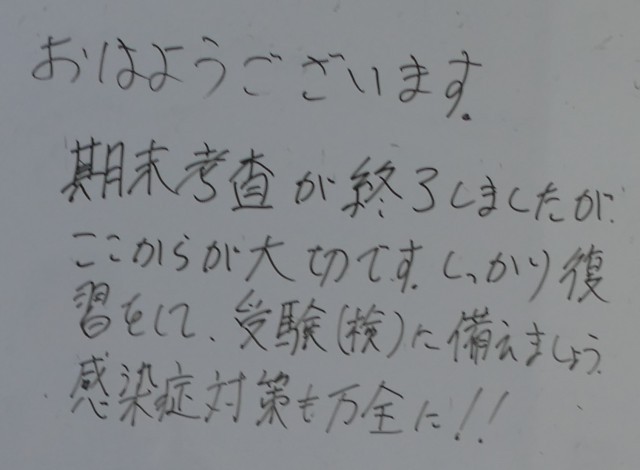 おはようございます.
期末考査が終了しましたが.
ここからが大切です.しっかり復
習をして、受験(検)に備えましょう.
感染症対策も万全に!!